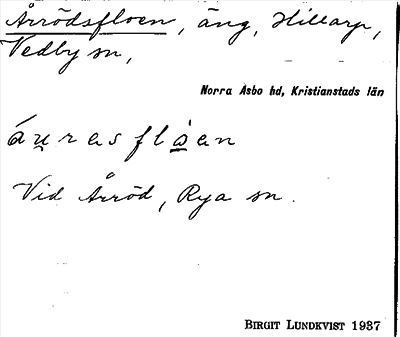 Årrödsfloen, äng, Hillarp,
Vedby sn,
Norra Åsbo hd, Kristianstads län
áu̯rasflȯ̱an
Vid Årröd, Rya sn.
BIRGIT LUNDKVIST 1937